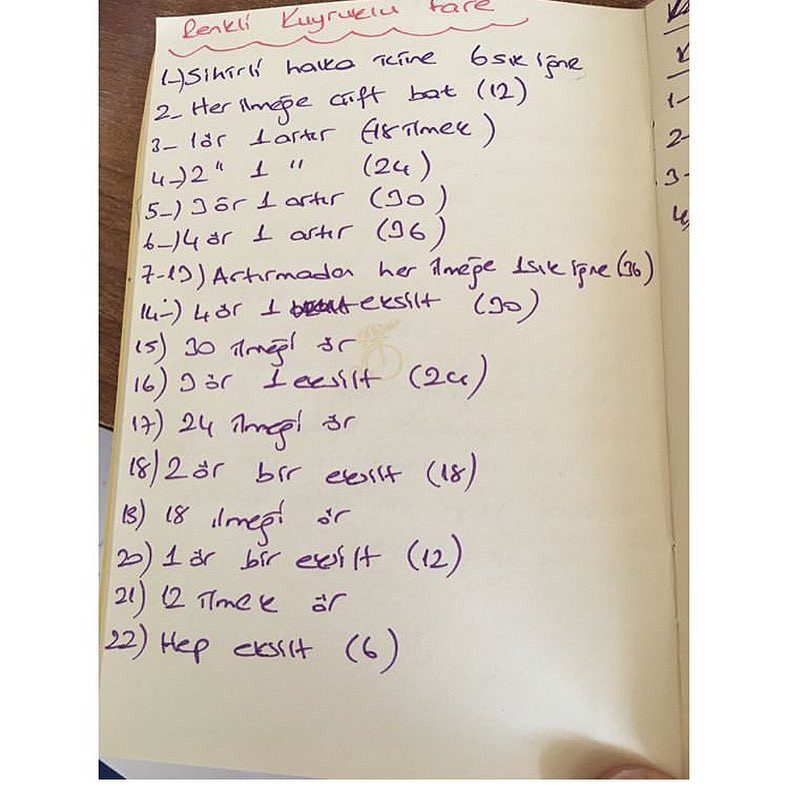 Renkli Kuyruklu fare
1-) Sihirli halka içine 6 sık iğne
2- Her ilmeğe çift bat (12)
3- 1 ör 1 artır (18 ilmek)
4-) 2 " 1 " (24)
5-) 3 ör 1 artır (30)
6-) 4 ör 1 artır (36)
7-13) Artırmadan her ilmeğe 1 sık iğne (36)
14-) 4 ör 1 eksilt (30)
15) 30 ilmeği ör
16) 3 ör 1 eksilt (24)
17) 24 ilmeği ör
18) 2 ör bir eksilt (18)
19) 18 ilmeği ör
20) 1 ör bir eksilt (12)
21) 12 ilmek ör
22) Hep eksilt (6)
1-
2-
3-
4